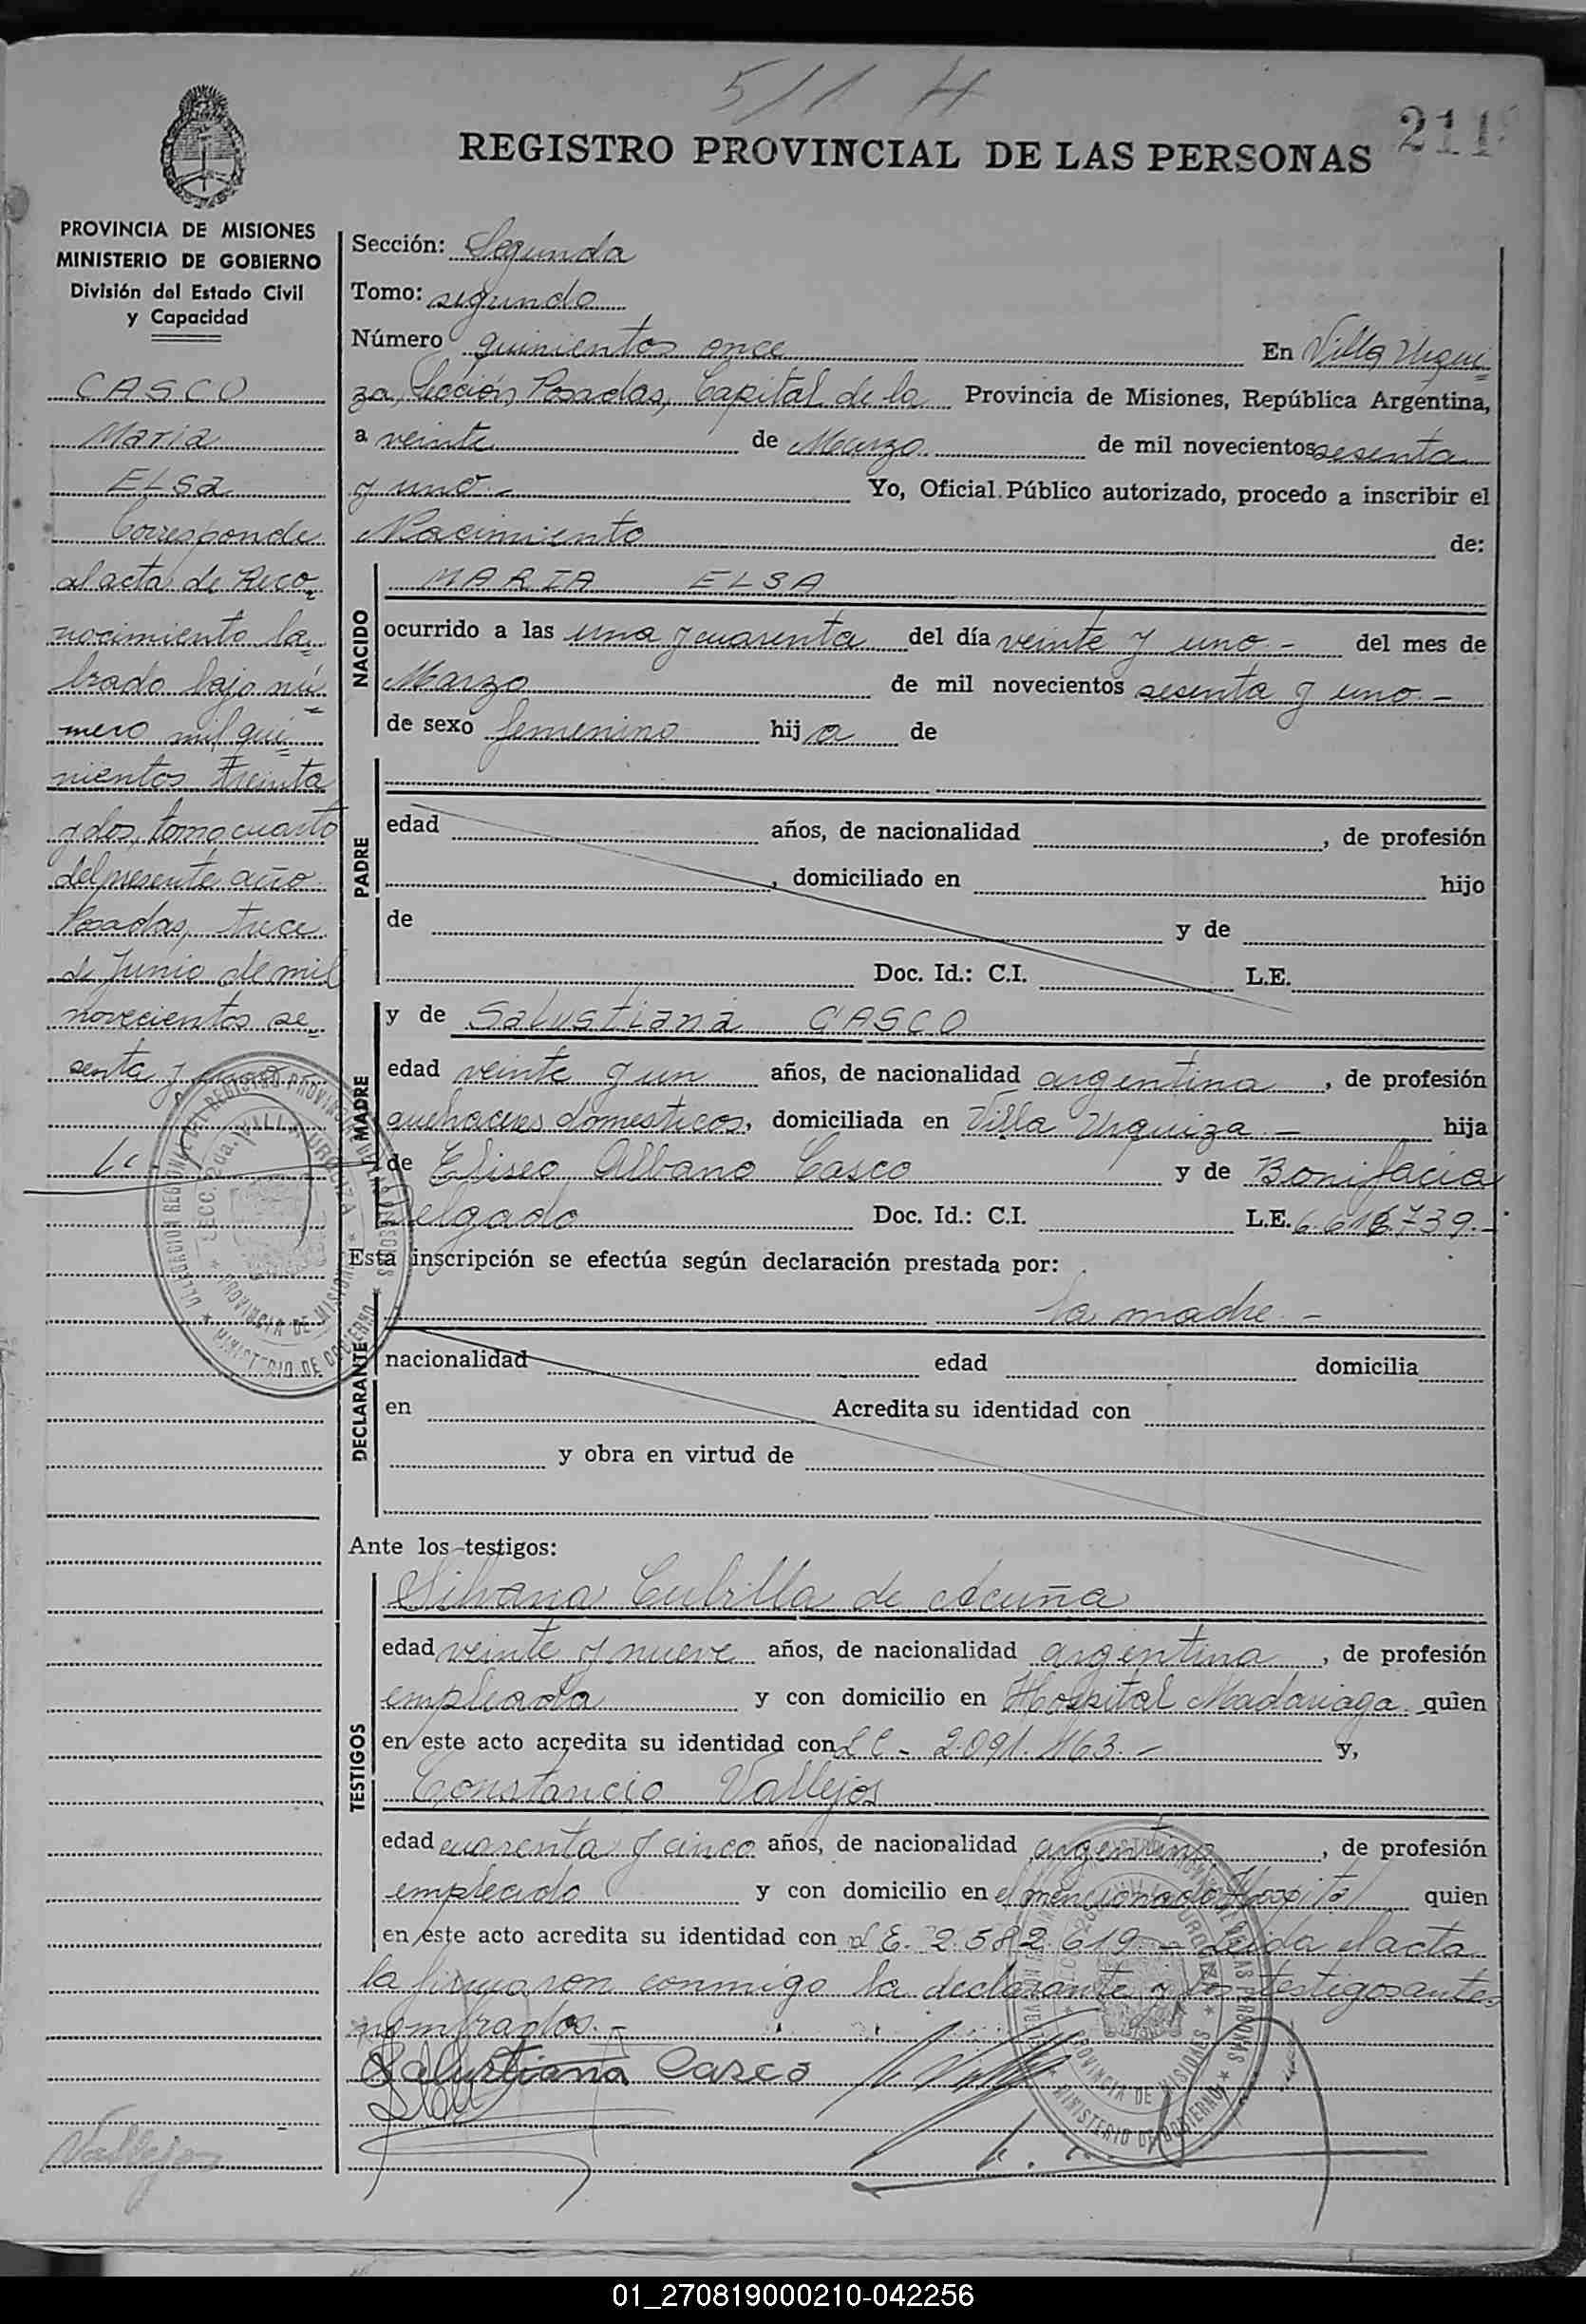 5/1 H
211
REGISTRO PROVINCIAL DE LAS PERSONAS
PROVINCIA DE MISIONES
MINISTERIO DE GOBIERNO
División del Estado Civil
y Capacidad
CASCO
Maria
ELSa
Corresponde
al acta de Reco
nocimiento la
brado bajo nú
mero mil qui
nientos treinta
y dos, tomo cuarto
del presente año
Posadas, trece
de Junio de mil
novecientos se
senta y
Vallejos
Sección: Segunda
Tomo: segundo
Número quinientos once En Villa Urqui
za, Sección Posadas, Capital de la Provincia de Misiones, República Argentina,
a veinte de Marzo de mil novecientos sesenta
y uno.- Yo, Oficial Público autorizado, procedo a inscribir el
Nacimiento de:
NACIDO
MARIA ELSA
ocurrido a las una y cuarenta del día veinte y uno.- del mes de
Marzo de mil novecientos sesenta y uno.-
de sexo femenino hija de
PADRE
edad años, de nacionalidad , de profesión
, domiciliado en hijo
de y de
Doc. Id.: C.I. L.E.
MADRE
y de Salustiana CASCO
edad veinte y un años, de nacionalidad argentina, de profesión
quehaceres domesticos, domiciliada en Villa Urquiza.- hija
de Eliseo Albano Casco y de Bonifacia
Delgado Doc. Id.: C.I. L.E. 6.616.739.-
Esta inscripción se efectúa según declaración prestada por:
la madre.-
DECLARANTE
nacionalidad edad domicilia
en Acredita su identidad con
y obra en virtud de
Ante los testigos:
TESTIGOS
Silvana Cubilla de Acuña
edad veinte y nueve años, de nacionalidad argentina, de profesión
empleada y con domicilio en Hospital Madariaga quien
en este acto acredita su identidad con LC - 2.091.163.- y,
Constancio Vallejos
edad cuarenta y cinco años, de nacionalidad argentino, de profesión
empleado y con domicilio en el mencionado Hospital quien
en este acto acredita su identidad con L E. 2.582.619.- Leída el acta
la firmaron conmigo la declarante y los testigos antes
nombrados.-
Salustiana Casco
01_270819000210-042256